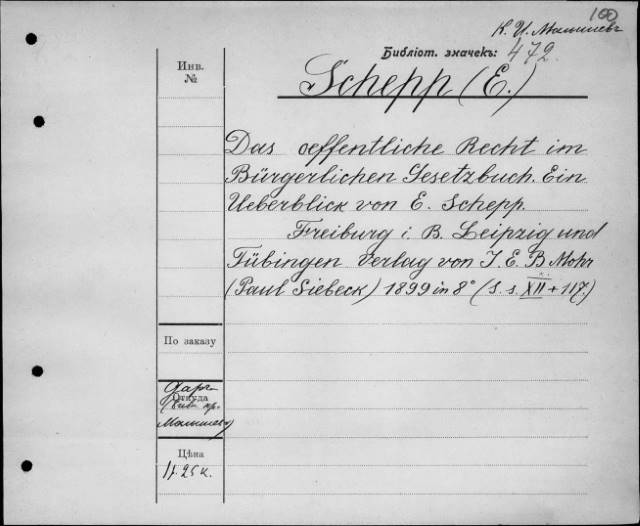 100
К. И. Малышевъ
Библіот. значекъ: 472.
Инв.
№
Schepp (E.)
Das oeffentliche Recht im
Bürgerlichen Gesetzbuch. Ein
Ueberblick von E. Schepp.
Freiburg i. B. Leipzig und
Tübingen Verlag von J. E. B Mohr
(Paul Siebeck) 1899 in 8° (S. s. XII + 117.)
По заказу
Откуда
Даръ
Малышева)
Цѣна
1 р. 25 к.